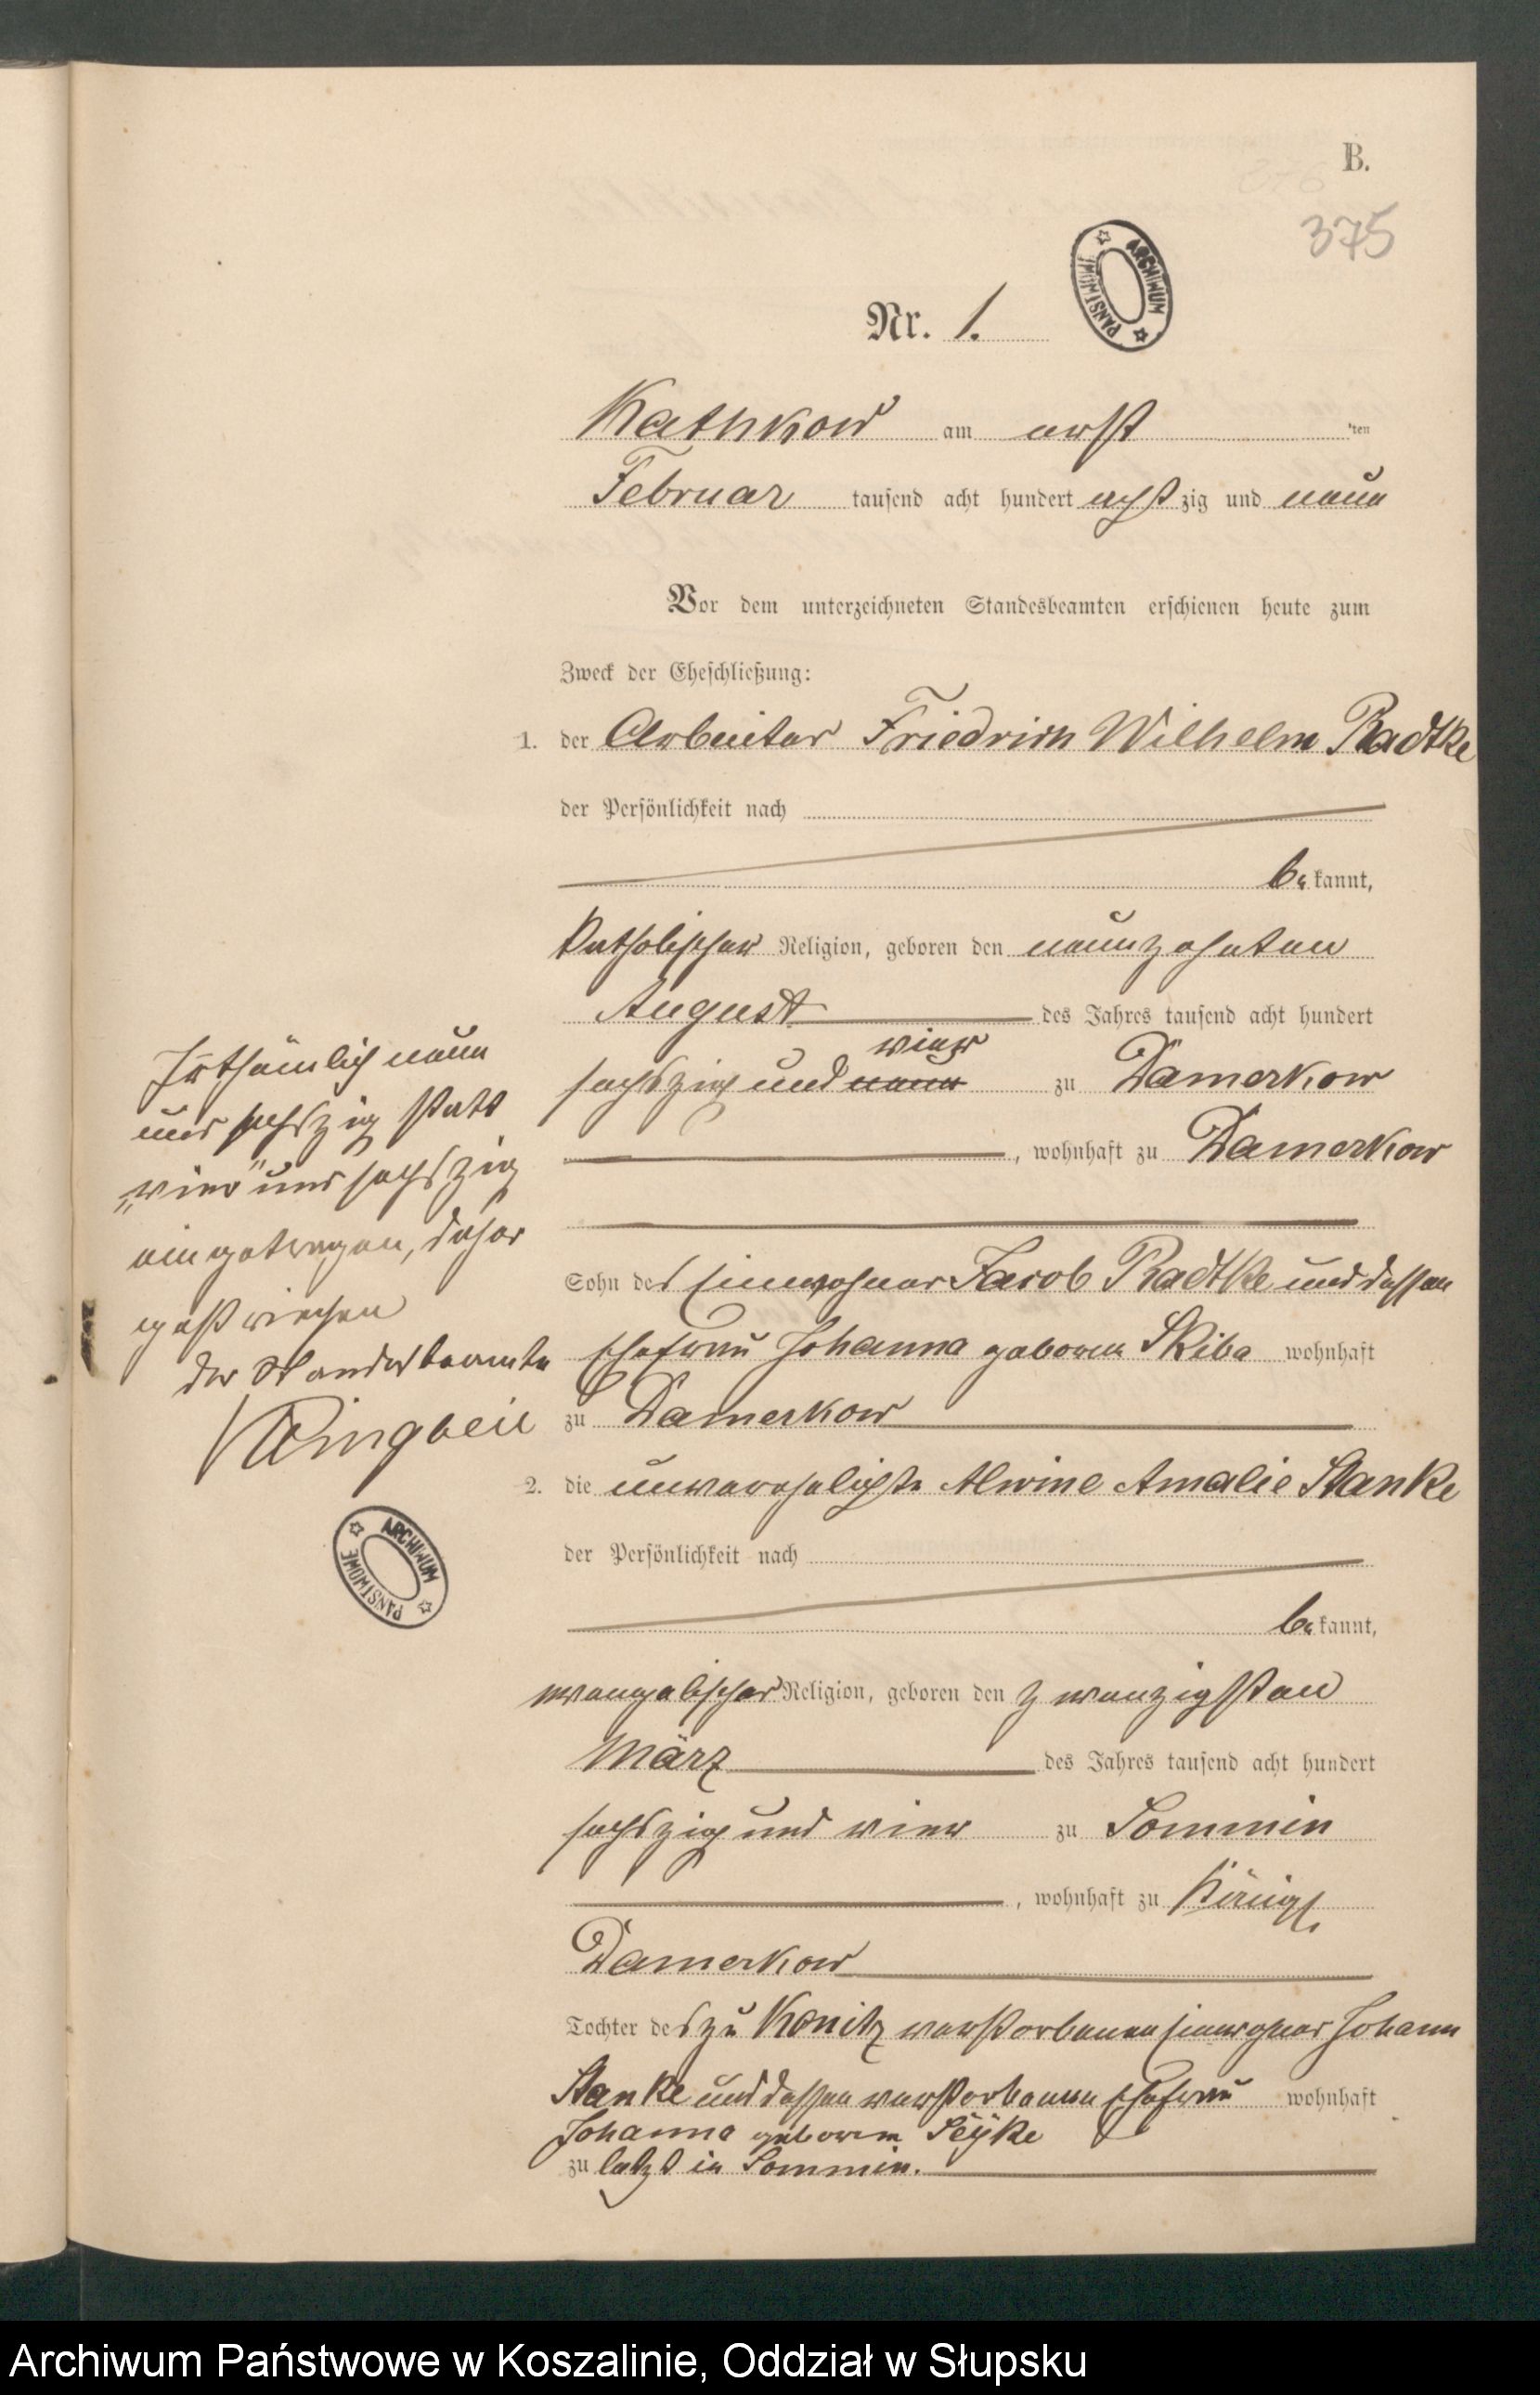 B.
375
Nr. 1.
Kathkow am erst ten
Februar tausend acht hundert achtzig und neun
Vor dem unterzeichneten Standesbeamten erschienen heute zum
Zweck der Eheschließung:
1. der Arbeiter Friedrich Wilhelm Radtke
der Persönlichkeit nach
bekannt,
katholischer Religion, geboren den neunzehnten
August des Jahres tausend acht hundert
vier
sechszig und neun zu Damerkow
, wohnhaft zu Damerkow
Sohn des Einwohner Jacob Radtke und dessen
Ehefrau Johanna geborene Skiba wohnhaft
zu Damerkow
Irthümlich neun
und sechszig statt
„vier" und sechszig
eingetragen, daher
gestrichen
Der Standesbeamte
Klingbeil
2. die unverehelichte Alwine Amalie Stanke
der Persönlichkeit nach
bekannt,
evangelischer Religion, geboren den zwanzigsten
März des Jahres tausend acht hundert
sechszig und vier zu Sommin
, wohnhaft zu Königl.
Damerkow
Tochter des zu Konitz verstorbenen Einwohner Johann
Stanke und dessen verstorbenen Ehefrau wohnhaft
Johanna geborene
zu letzt in Sommin.
ARCHIWUM PAŃSTWOWE
ARCHIWUM PAŃSTWOWE
Archiwum Państwowe w Koszalinie, Oddział w Słupsku